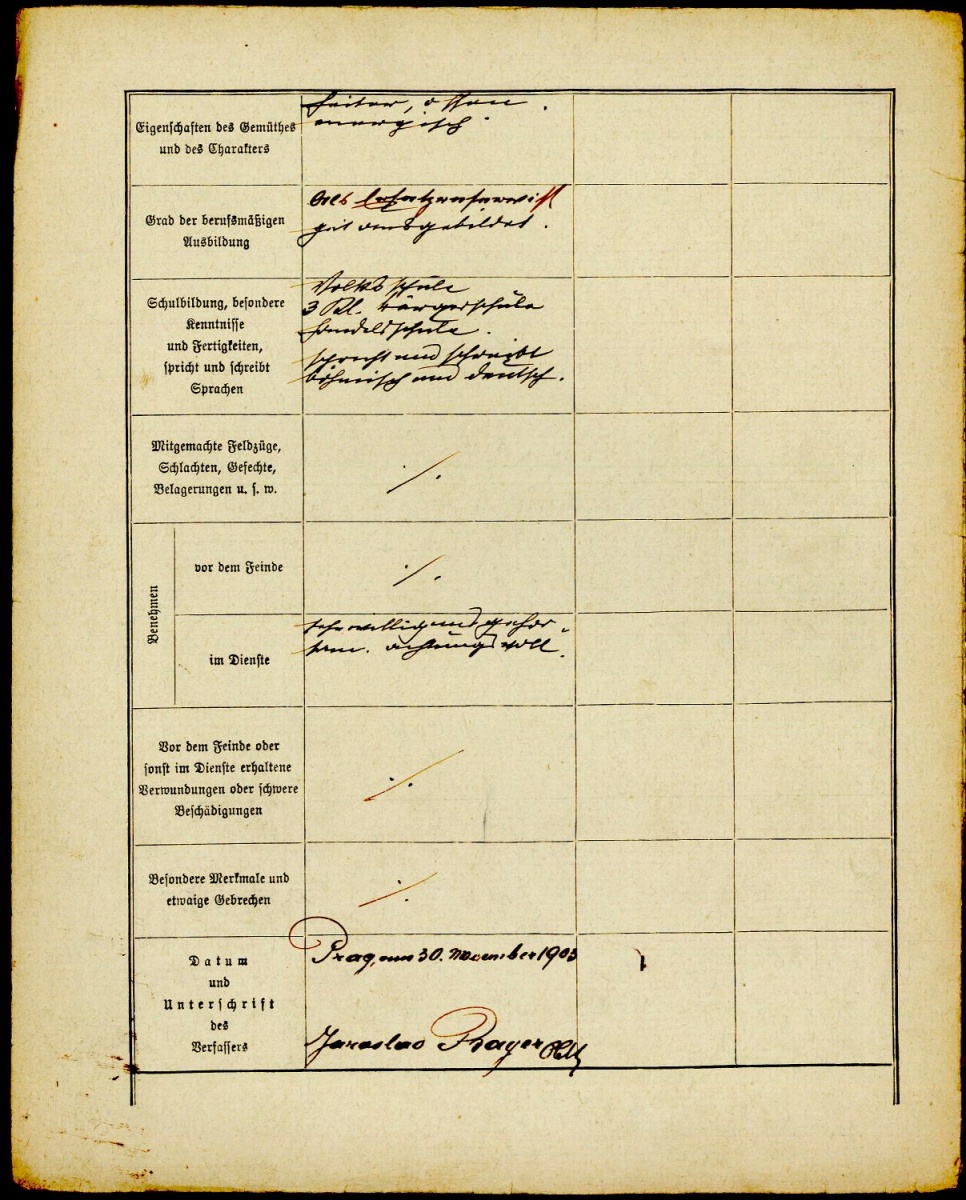 Eigenschaften des Gemüthes
und des Charakters
heiter, offen.
energisch.
Grad der berufsmäßigen
Ausbildung
Als Ersatzreservist
gut ausgebildet.
Schulbildung, besondere
Kenntnisse
und Fertigkeiten,
spricht und schreibt
Sprachen
Volksschule
3 Kl. Bürgerschule
Handelsschule.
spricht und schreibt
böhmisch und deutsch.
Mitgemachte Feldzüge,
Schlachten, Gefechte,
Belagerungen u. s. w.
./.
Benehmen
vor dem Feinde
./.
im Dienste
sehr willig und gehor-
sam. achtungsvoll.
Vor dem Feinde oder
sonst im Dienste erhaltene
Verwundungen oder schwere
Beschädigungen
./.
Besondere Merkmale und
etwaige Gebrechen
./.
Datum
und
Unterschrift
des
Verfassers
Prag, am 30. November 1903
Jaroslav Bayer